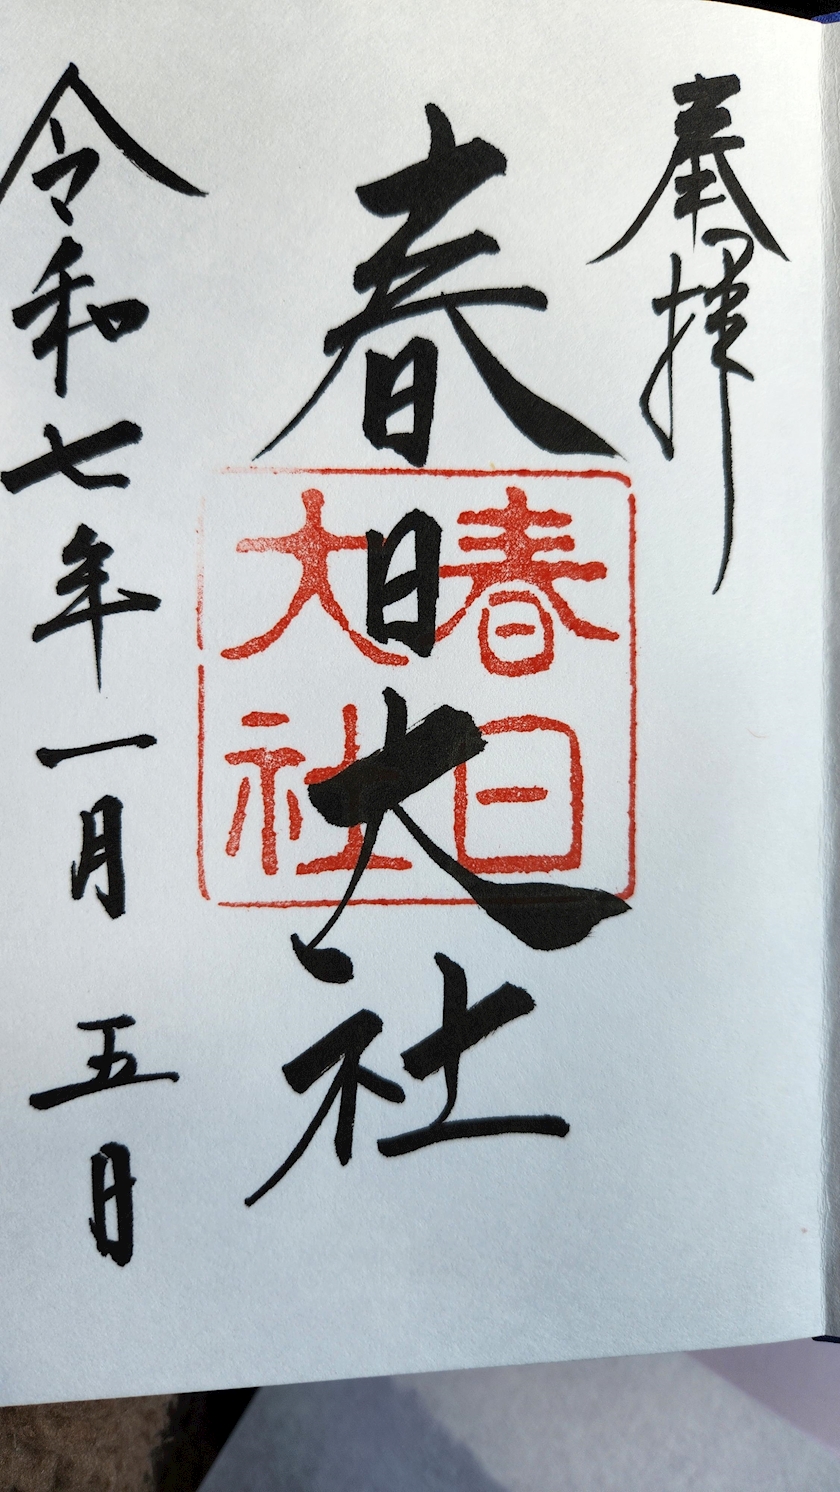 奉拝
春日大社
春日
大社
令和七年一月五日